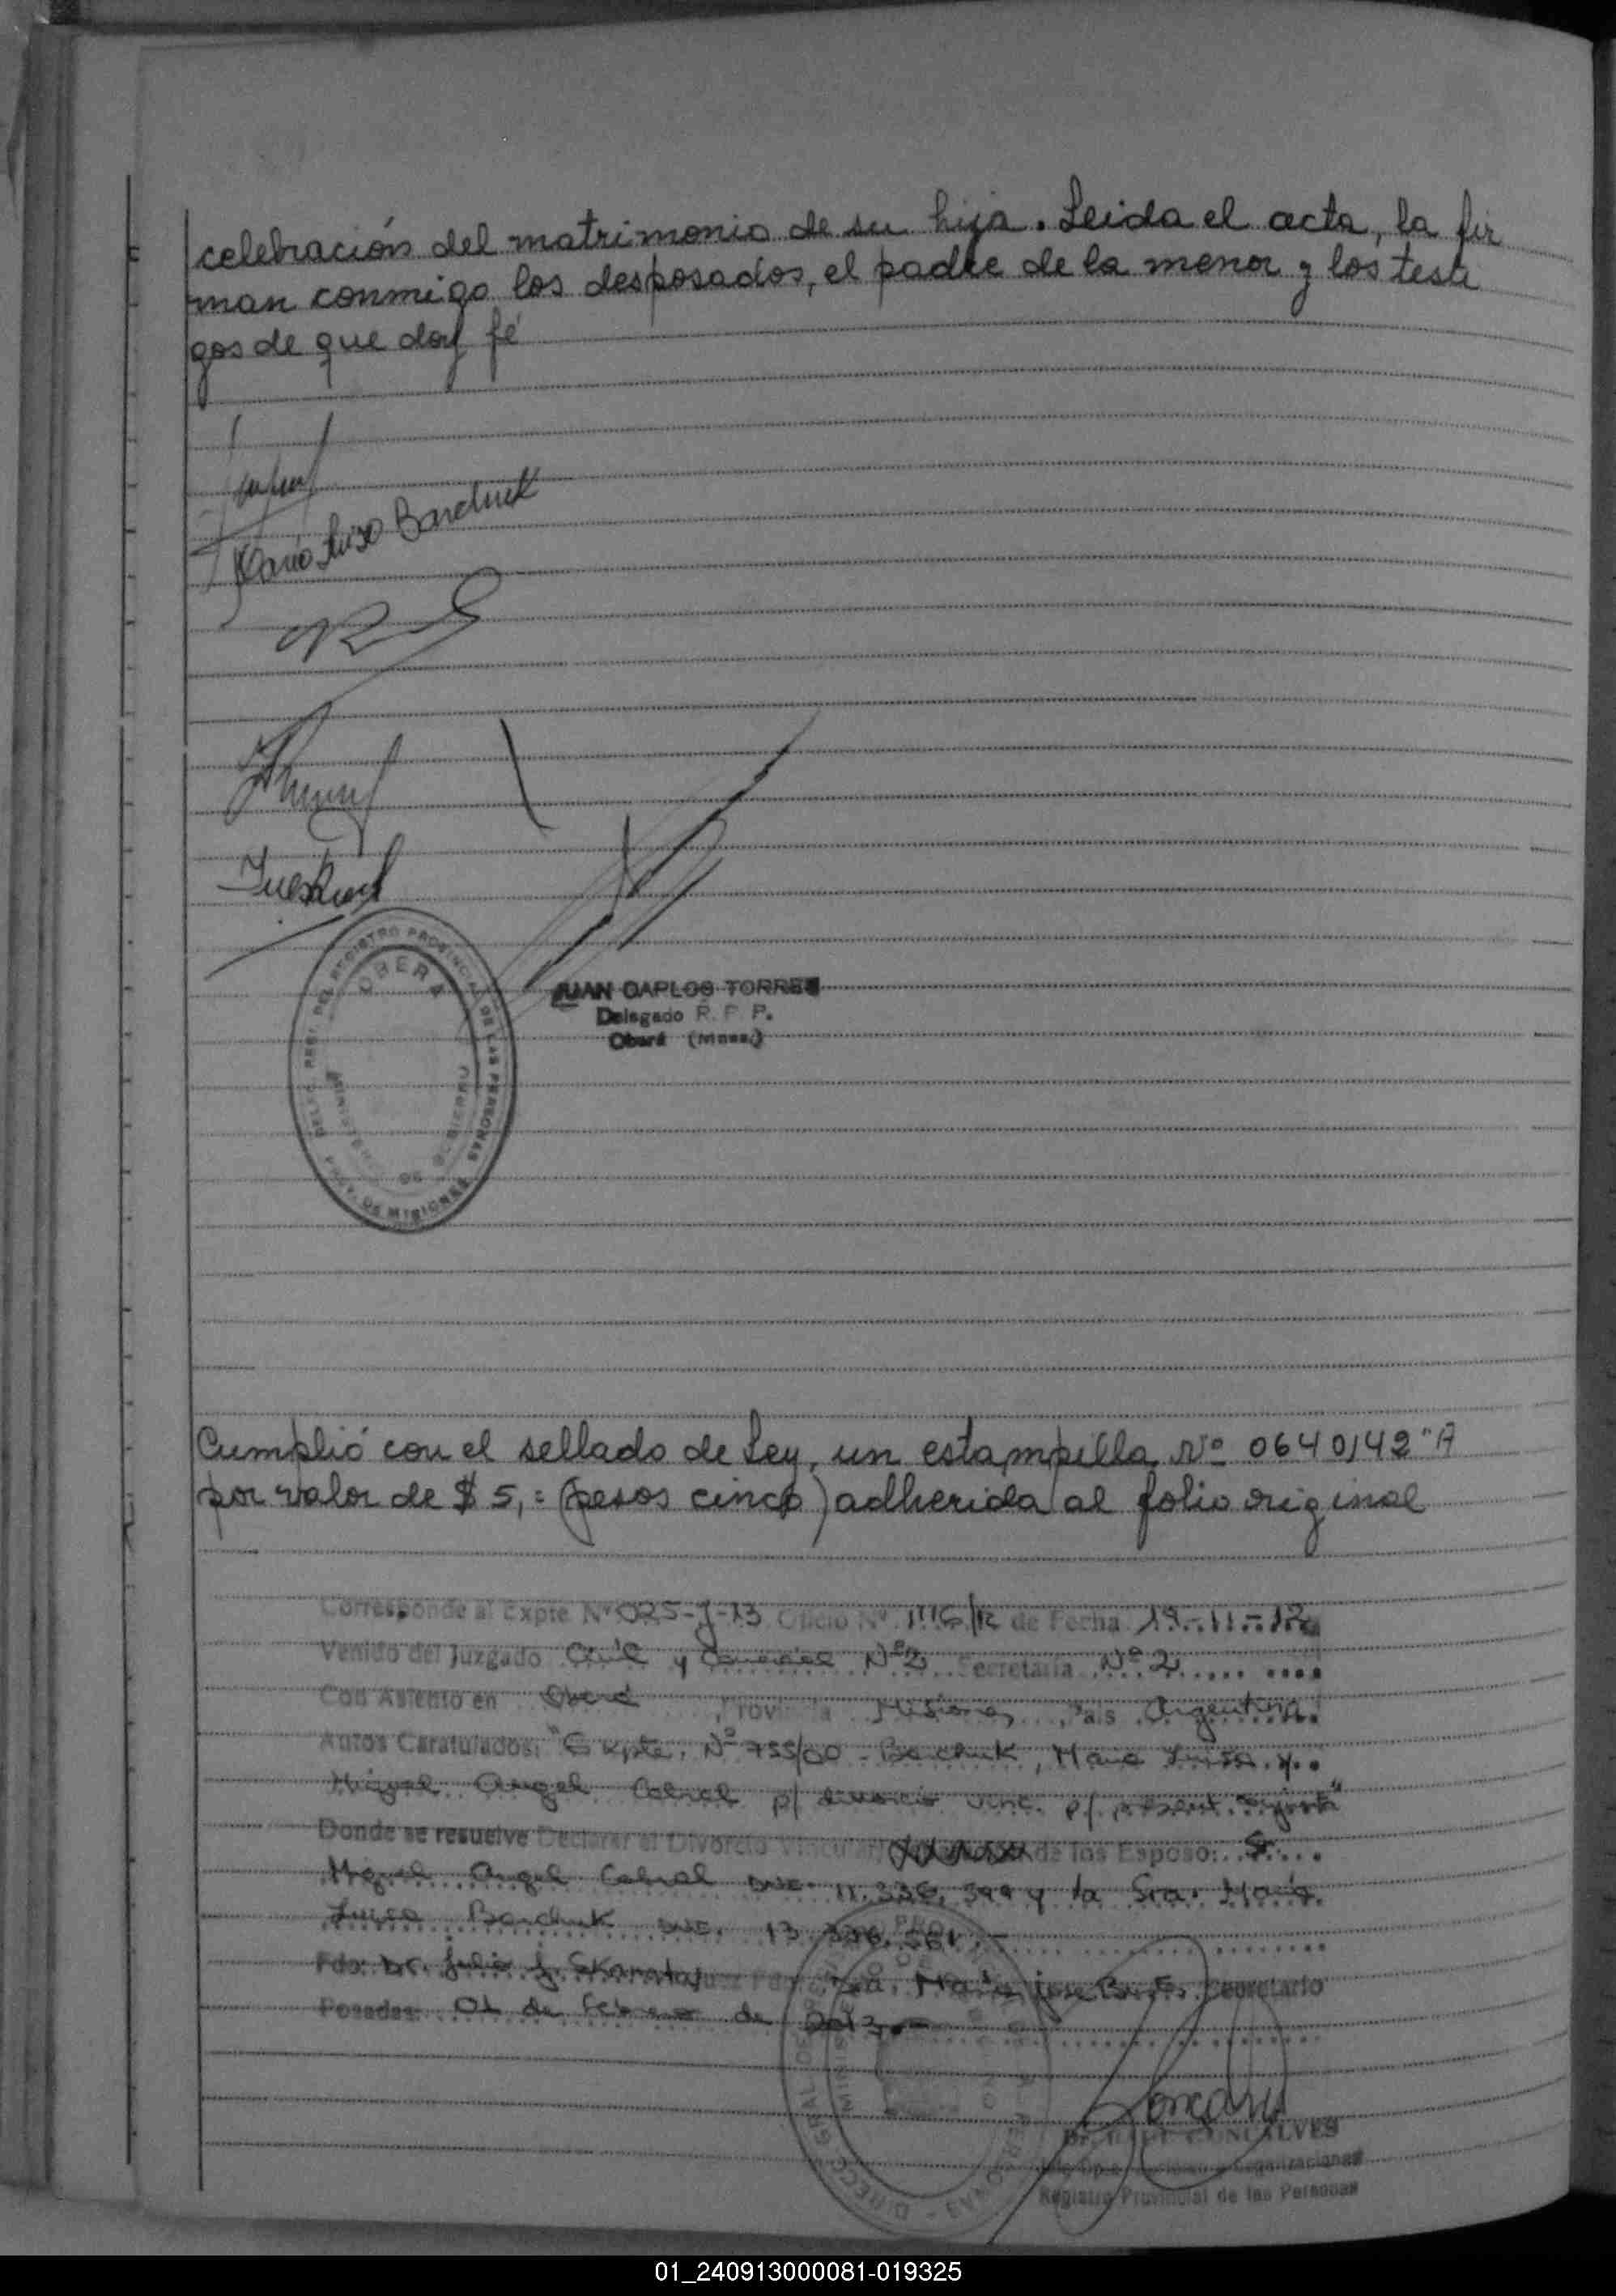 celebración del matrimonio de su hija. Leida el acta, la fir
man conmigo los desposados, el padre de la menor y los testi
gos de que doy fé
Maria Luisa Barchuk
JUAN CARLOS TORRES
Delegado R. P. P.
Oberá (Mnes.)
DEL REGISTRO PROVINCIAL DE LAS PERSONAS
OBERA
MINISTERIO DE GOBIERNO
PROV. DE MISIONES
Cumplió con el sellado de Ley, un estampilla Nº 0640142 "A
por valor de $ 5,= (pesos cinco) adherida al folio original
Corresponde al Expte Nº 025-J-13 Oficio Nº 1116/12 de Fecha 19-11-12
Venido del Juzgado Civil y Comercial Nº 2 Secretaría Nº 2
Con Asiento en Oberá, Provincia Misiones, País Argentina
Autos Caratulados: "Expte. Nº 755/00 - Barchuk, Maria Luisa y
Miguel Angel Cabral p/ divorcio vinc. p/ present. conjunta"
Donde se resuelve Declarar el Divorcio Vincular de los Esposo: Sr.
Miguel Angel Cabral DNI. 11.336.399 y la Sra. María
Luisa Barchuk DNI. 13.376.561.-
Fdo: Dr. Julio J. Juez Fdo: Dra. María Secretario
Posadas: 01 de Febrero de 2013.-
GONCALVES
Registro Provincial de las Personas
01_240913000081-019325